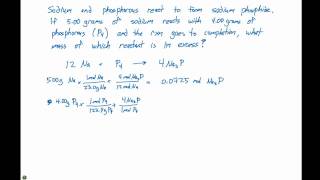 Sodium and phosphorous react to form sodium phosphide.
If 5.00 grams of sodium reacts with 4.00 grams of
phosphorous (P₄) and the rxn goes to completion, what
mass of which reactant is in excess?
12 Na + P₄ → 4 Na₃P
5.00g Na × 1 mol Na / 23.0g Na × 4 mol Na₃P / 12 mol Na = 0.0725 mol Na₃P
4.00g P₄ × 1 mol P₄ / 123.9g P₄ × 4 Na₃P / 1 mol P₄